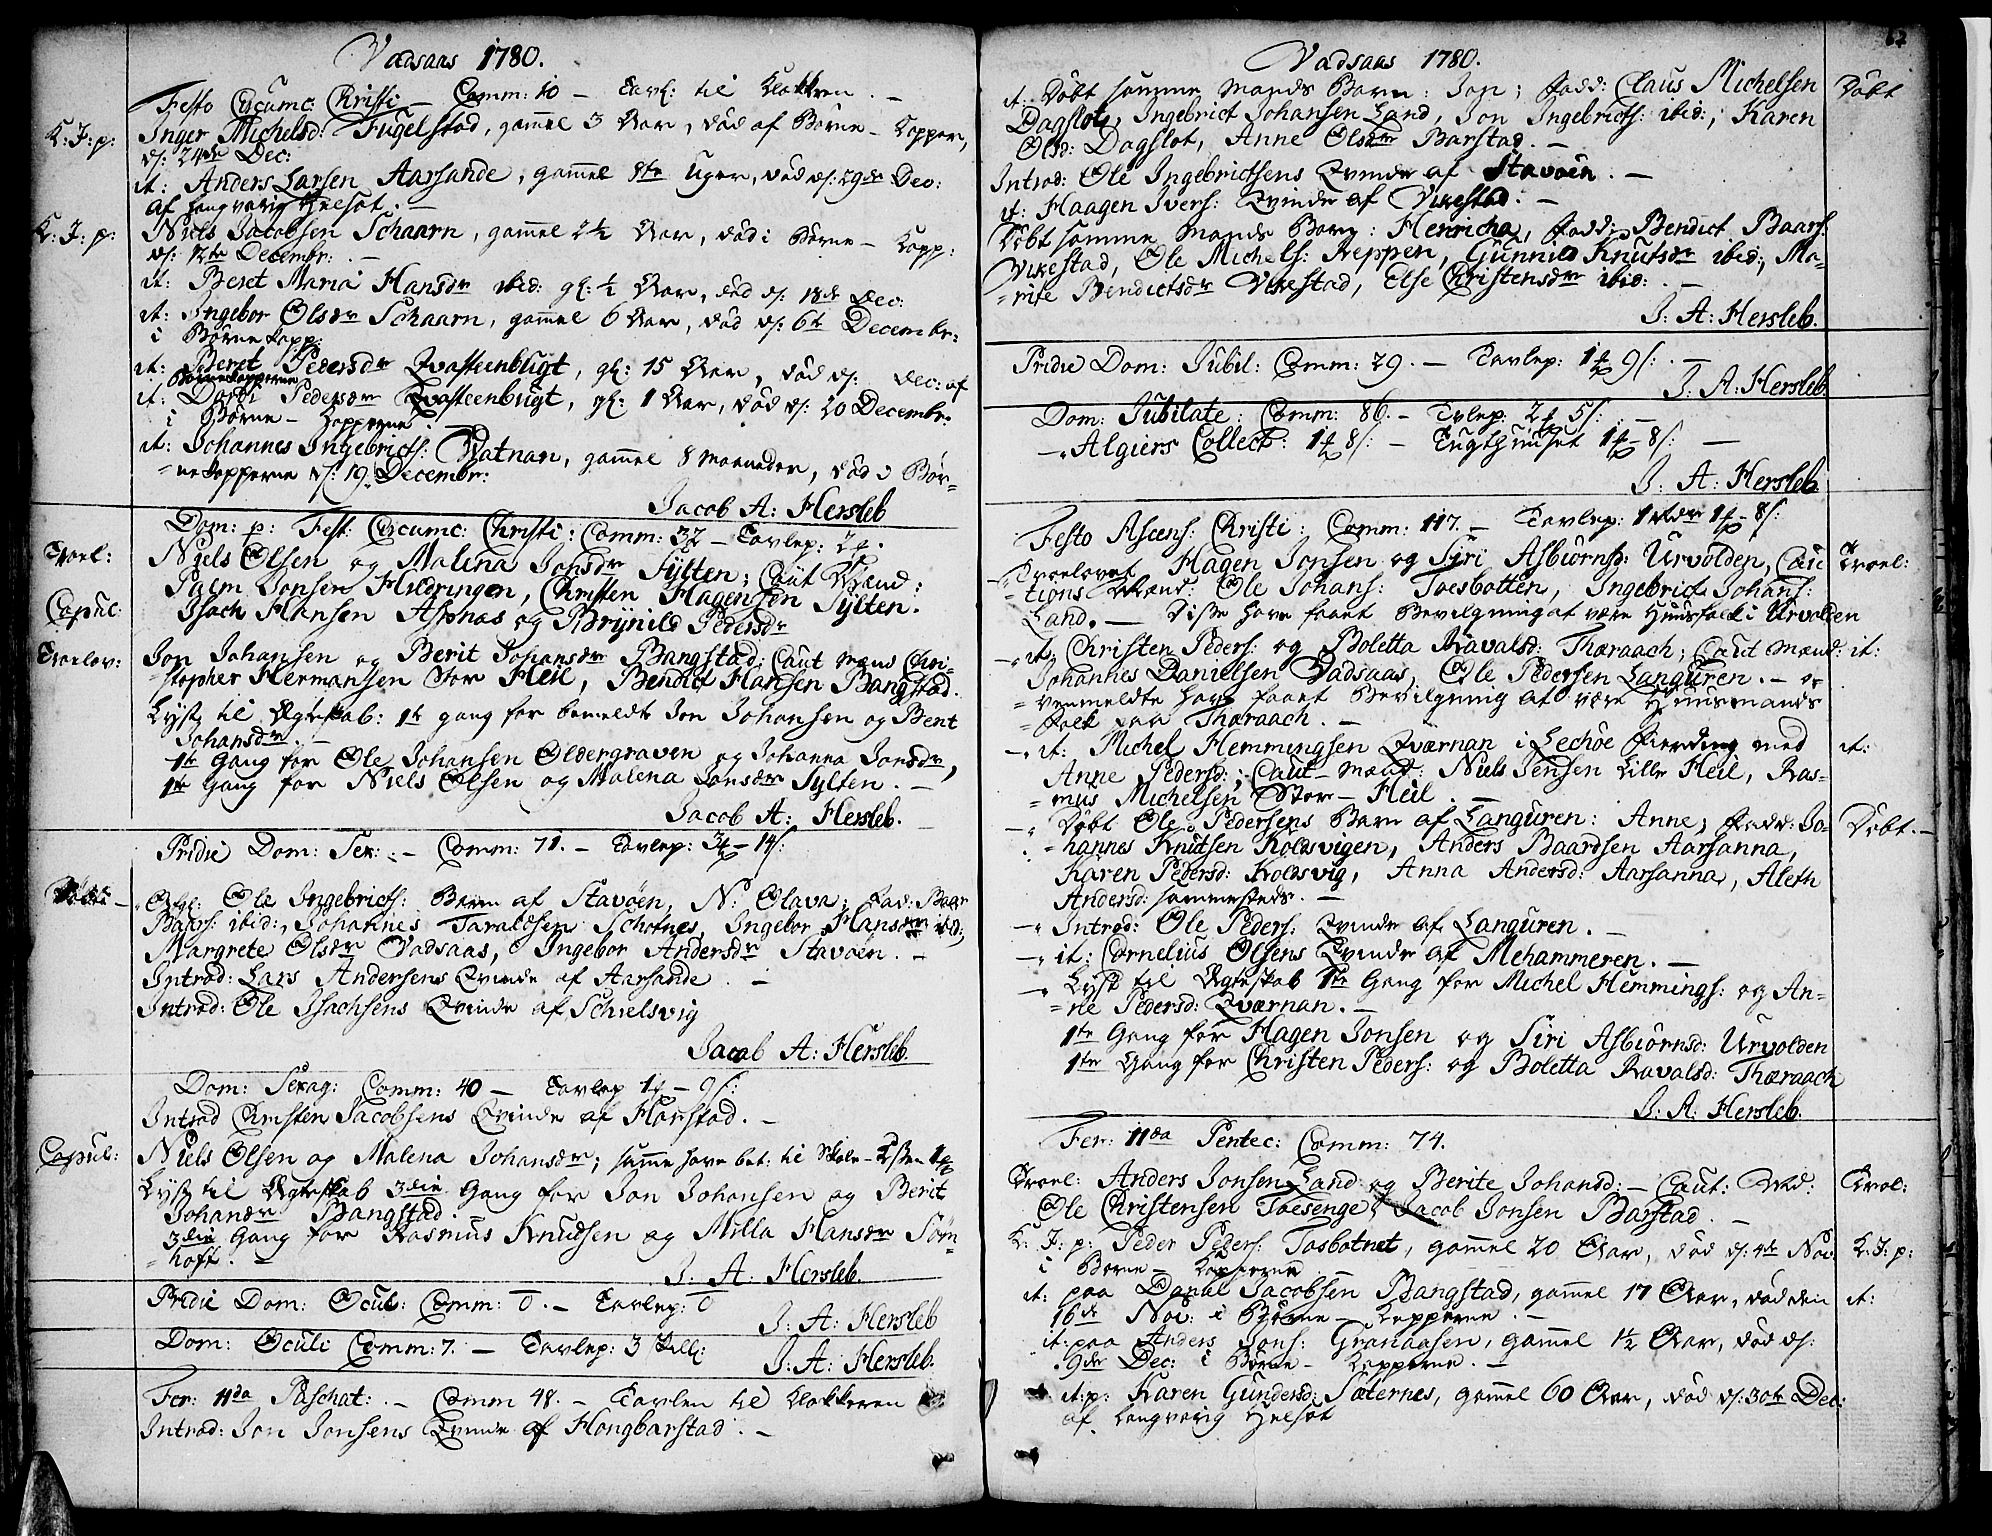 Vadsaas 1780.
Festo Circumc: Christi — Comm: 10 — Tavl: til Klokken. —
K: J: p: Inger Michelsd: Fugelstad, gammel 3 Aar, død af Børne-Kopper,
d: 24de Dec:
it: Anders Larsen Aarsande, gammel 8te Uger, død d: 29de Dec:
af langvarig Helsot. —
K: J: p: Niels Jacobsen Schaarn, gammel 2½ Aar, død i Børne-Kopp:
d: 12te Decembr: —
it: Beret Maria Hansdr ibid: gl: ½ Aar, død d: 18de Dec:
it: Ingebor Olsdr Schaarn, gammel 6 Aar, død d: 6te Decembr:
i Børnekopp:
it: Beret Pedersdr Qvasteenbugt, gl: 15 Aar, død d: Dec: af
Børnekopperne
it: Dorth Pedersdr Qvasteenbugt, gl: 1 Aar, død d: 20 Decembr:
i Børne-Kopperne. —
it: Johannes Ingebrictss: Vatnan, gammel 8 Maaneder, død i Bør-
nekopperne d: 19 Decembr:
Jacob A: Hersleb
Dom: p: Fest: Circumc: Christi: Comm: 32 — Tavlep: 2
Troel: Niels Olsen og Malena Johsdr Sylten; Caut Mænd:
Palm Jonsen Hildringen, Christen Hagensen Sylten.
Copul: Isach Hansen Aspnas og Brynild Pedersdr
Troelov: Jon Johansen og Berit Johansdr Bangstad; Caut Mænd Chri-
stopher Hermansen Stor Heil, Bendict Hansen Bangstad.
Lyst til Ægteskab: 1te gang for bemeldte Jon Johansen og Berit
Johansdr. —
1te Gang for Ole Johansen Oldergraven og Johanna Jonsdr,
1te Gang for Niels Olsen og Malena Jonsdr Sylten. —
Jacob A: Hersleb.
Pridie Dom: Sex: — Comm: 71. — Tavlep: 3 — 14 s:
Døbt — Ole Ingebrictss: Barn af Stavøen, N: Olava; Fad: Baar
Baars: ibid:, Johannes Taraldsen Schotnes, Ingebor Hansdr ibid:,
Margrete Olsdr Vadsaas, Ingebor Andersdr Stavøen. —
Introd: Lars Andersens Qvinde af Aarsande. —
Introd: Ole Isachsens Qvinde af Schielsvig
Jacob A: Hersleb.
Dom: Sexag: Comm: 40 — Tavlep 1 — 9 s:
Introd Christen Jacobsens Qvinde af Horstad. —
Copul: Niels Olsen og Malena Johansdr; samme have bet: til Skole-Cassen 1
Lyst til Ægteskab 3die Gang for Jon Johansen og Berit
Johansdr Bangstad
3die Gang for Rasmus Knudsen og Milla Hansdr Søm-
hoft. —
J. A: Hersleb.
Pridie Dom: Ocul: Comm: 0. — Tavlep: 0
J: A: Hersleb
Dom: Oculi Comm: 7. — Tavlep: 3 Skill:
J: A: Hersleb.
Fer: 11da Paschat: — Comm 48. — Tavlen til Klokkeren
Introd: Jon Jonsens Qvinde af Hongbarstad. —
62
Vadsaas 1780.
it: Døbt samme Mands Barn: Jon; Fadd: Claus Michelsen Døbt
Dagslot, Ingebrict Johansen Land, Jon Ingebrictss: ibid:, Karen
Olsd: Dagslot, Anne Olsdr Barstad. —
Introd: Ole Ingebrictsens Qvinde af Stavøen. —
it: Haagen Ivers: Qvinde af Vikestad. —
Døbt samme Mands Barn: Henricha, Fadd: Bendict Baars:
Vikestad, Ole Michels: Reppen, Gunnild Knutsdr ibid:, Ma-
rite Bendictsdr Vikestad, Else Christensdr ibid: —
J: A: Hersleb.
Pridie Dom: Jubil: Comm: 29. — Tavlep: 1 9 s: —
J: A: Hersleb.
Dom: Jubilate: Comm: 86. — Tavlep: 2 5 s: —
Algiers Collect: 1 8 s: — Tugthuuset 1 — 8 s: —
J: A: Hersleb
Festo Ascens: Christi: Comm: 117. — Tavlep: 1 rdr 1 — 8 s:
Troelovet Hagen Jonsen og Siri Asbiørnsd: Urvolden, Cau- Troel:
tions Mænd: Ole Johans: Toesbotten, Ingebrict Johans:
Land. — Disse have faaet Bevilgning at være Huusfolk i Urvolden
it: Christen Peders: og Boletta Ravalsd: Thæraach; Caut Mænd: it:
Johannes Danielsen Vadsaas, Ole Pedersen Languren. — o-
venmeldte have faaet Bevilgning at være Huusmands
Folk paa Thæraach. —
it: Michel Hemmingsen Qværnan i Lechøe Fierding med it:
Anne Pedersd:; Caut-Mænd: Niels Jensen Lille Heil, Ras-
mus Michelsen Stor-Heil. —
Døbt Ole Pedersens Barn af Languren: Anne; Fadd: Jo- Døbt. —
hannes Knutsen Koldsvigen, Anders Baardsen Aarsanna,
Karen Pedersd: Koldsvig, Anna Andersd: Aarsanna, Aleth
Andersd: sammesteds. —
Introd: Ole Peders: Qvinde af Languren. —
it: Cornelius Olsens Qvinde af Mehammeren. —
Lyst til Ægteskab 1te Gang for Michel Hemmings: og An-
ne Pedersd: Qværnan. —
1te Gang for Hagen Jonsen og Siri Asbiørnsd: Urvolden
1te Gang for Christen Peders: og Boletta Ravalsd: Thæraach
J: A: Hersleb.
Fer: 11da Pentec: Comm: 74.
Troel: Anders Jonsen Land og Berite Johansd: — Caut: Md: Troel:
Ole Christensen Toesenge, Jacob Jonsen Barstad. —
K: J: p: Peder Peders: Tosbotnet, gammel 20 Aar, død d: 4de Nov: K: J: p:
i Børne-Kopperne
it: paa Daniel Jacobsen Bangstad, gammel 17 Aar, død den it:
16de Nov: i Børne-Kopperne. —
it: paa Anders Jons: Granaasen, gammel 1½ Aar, død d:
9de Dec: i Børne-Kopperne. —
it: p: Karen Gundersd: Sæternes, gammel 60 Aar, død d: 30te Dec:
af langvarig Helsot